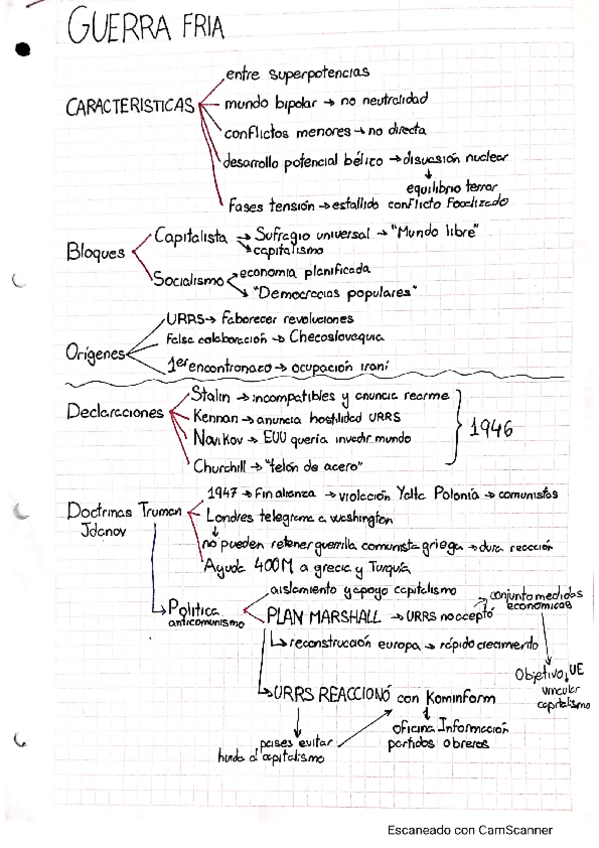 GUERRA FRIA
CARACTERISTICAS
entre superpotencias
mundo bipolar → no neutralidad
conflictos menores → no directa
desarrollo potencial bélico → disuasión nuclear
↓
equilibrio terror
Fases tensión → estallido conflicto Focalizado
Bloques
Capitalista → Sufragio universal → "Mundo libre"
↘ capitalismo
Socialismo
economía planificada
"Democracias populares"
Orígenes
URRS → Faborecer revoluciones
Falsa colaboración → Checoslovaquia
1er encontronazo → ocupación iraní
Declaraciones
Stalin → incompatibles y anuncia rearme
Kennan → anuncia hostilidad URRS
Novikov → EUU quería invadir mundo
Churchill → "telón de acero"
1946
Doctrinas Truman
Jdanov
1947 → Fin alianza → violación Yalta Polonia → comunistas
Londres telegrama a washington
↓
no pueden retener guerrilla comunista griega → dura reacción
Ayuda 400M a grecia y Turquía
→ Política
anticomunismo
aislamiento y apoyo capitalismo
PLAN MARSHALL → URRS no aceptó
→ conjunto medidas
económicas
↳ reconstrucción europa → rápido crecimiento
Objetivo, UE
vincular
capitalismo
URRS REACCIONÓ con Kominform
↓
oficina Información
partidos obreros
paises evitar
huida d'capitalismo
Escaneado con CamScanner